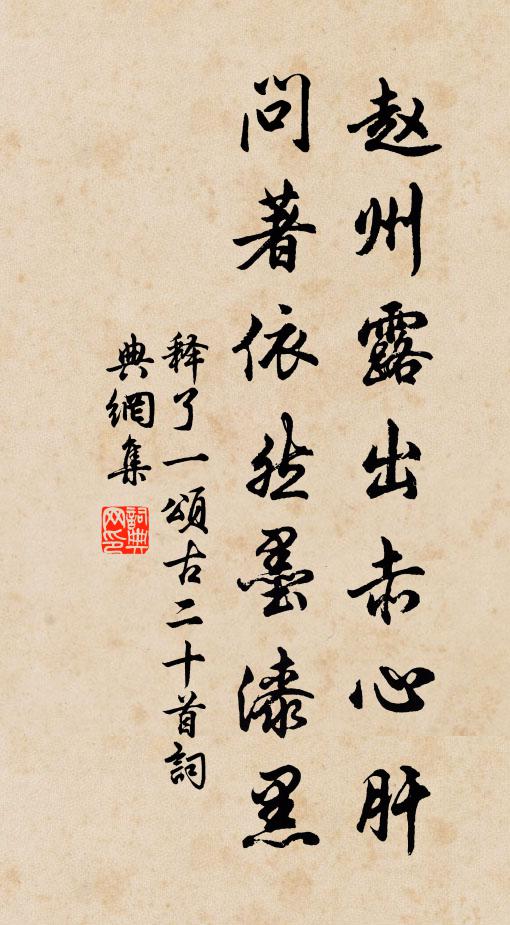 赵州露出赤心肝
问著依然墨漆黑
释了一颂古二十首词
典網集
詞典网印